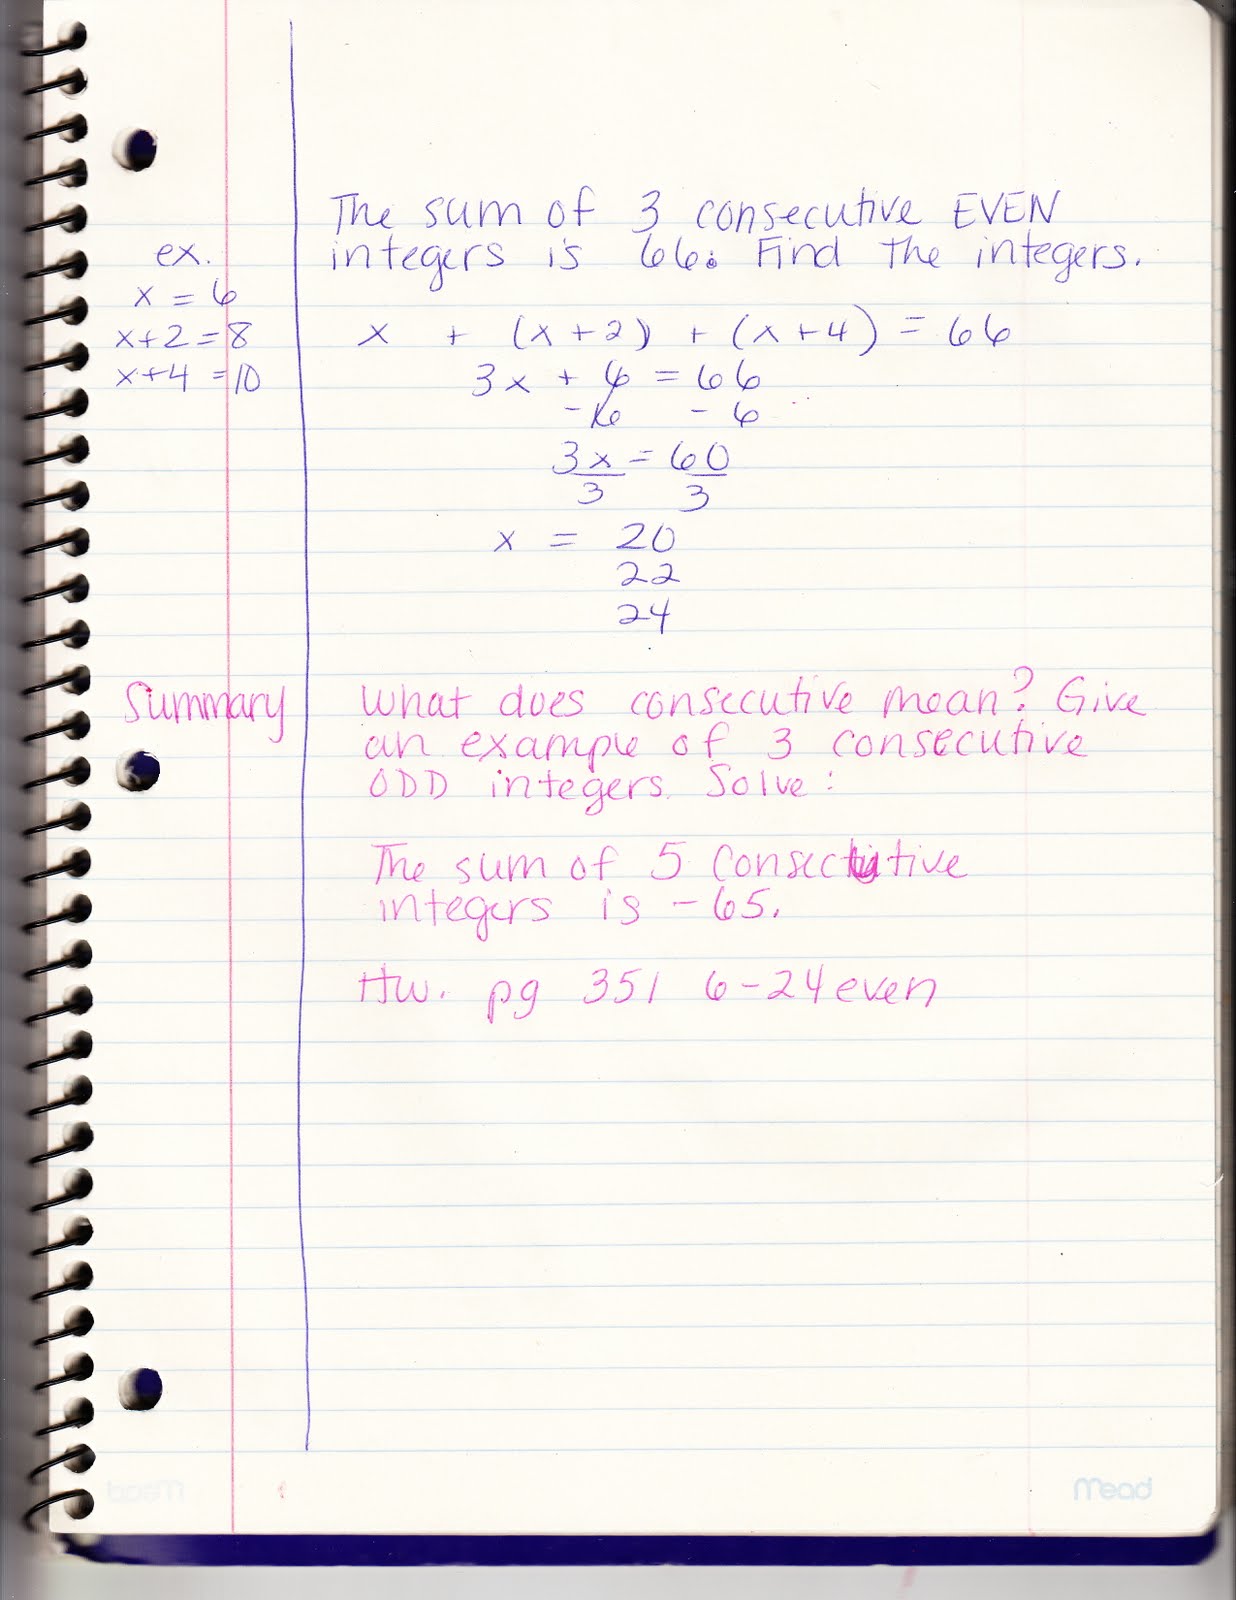 The sum of 3 consecutive EVEN
integers is 66. Find the integers.
ex.
x = 6
x+2 = 8
x+4 = 10
x + (x+2) + (x+4) = 66
3x + 6 = 66
-6 -6
3x = 60
3 3
x = 20
22
24
Summary
What does consecutive mean? Give
an example of 3 consecutive
ODD integers. Solve:
The sum of 5 consecutive
integers is -65.
Hw. pg 351 6-24 even
Mead